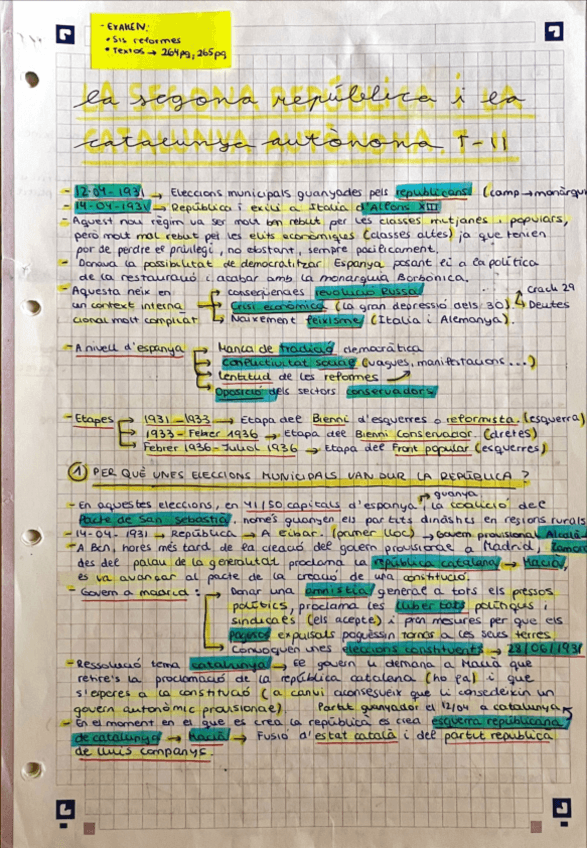 - EXAMEN:
• Sis reformes
• Textos → 264pg, 265pg
La segona república i la
Catalunya autònoma. T-11
- 12-04-1931 → Eleccions municipals guanyades pels republicans (camp → monàrqu
- 14-04-1931 → República i exili a Italia d'Alfons XIII
- Aquest nou règim va ser molt bon rebut per les classes mitjanes i populars,
però molt mal rebut pel les elits econòmiques (classes altes) ja que tenien
por de perdre el privilegi, no obstant, sempre pacíficament.
- Donava la possibilitat de democratitzar Espanya posant fi a la política
de la restauració i acabar amb la monarquia Borbònica.
- Aquesta neix en un context internacional molt complicat
→ conseqüències revolució Russa
→ Crisi econòmica (la gran depressió dels 30)
→ Crack 29
→ Deutes
→ Naixement feixisme (Italia i Alemanya).
- A nivell d'espanya
→ Manca de tradició democràtica
→ Conflictivitat social (vagues, manifestacions...)
→ Lentitud de les reformes
→ Oposició dels sectors conservadors
- Etapes
→ 1931-1933 → Etapa del Bienni d'esquerres o reformista. (esquerra)
→ 1933-Febrer 1936 → Etapa del Bienni Conservador. (dretes)
Febrer 1936-Juliol 1936 → Etapa del Front popular (esquerres)
1 PER QUÈ UNES ELECCIONS MUNICIPALS VAN DUR LA REPÚBLICA?
- En aquestes eleccions, en 41/50 capitals d'espanya, guanya la coalició del
Pacte de San Sebastià. només guanyen els partits dinàstics en regions rurals
- 14-04-1931 → República → A eibar. (primer lloc) → Govern provisional Alcalá-
- A Bcn, hores més tard de la creació del govern provisional a Madrid, Zamora
des del palau de la generalitat proclama la república catalana → Macià,
es va avançar al pacte de la creació de una constitució.
- Govern a madrid:
→ Donar una amnistia general a tots els presos
polítics, proclama les llibertats polítiques i
sindicals (els accepte) i pren mesures per que els
pagesos expulsats poguessin tornar a les seus terres
→ Convoquen unes eleccions constituents → 28/06/1931
- Ressolució tema catalunya → El govern li demana a Macià que
retire's la proclamació de la república catalana (ho fa) i que
s'esperes a la constitució (a canvi aconsegueix que li concedeixin un
govern autonòmic provisional). Partit guanyador el 12/04 a catalunya
- En el moment en el que es crea la república es crea esquerra republicana
de catalunya → Macià → Fusió d'estat català i del partit republicà
de lluís companys.